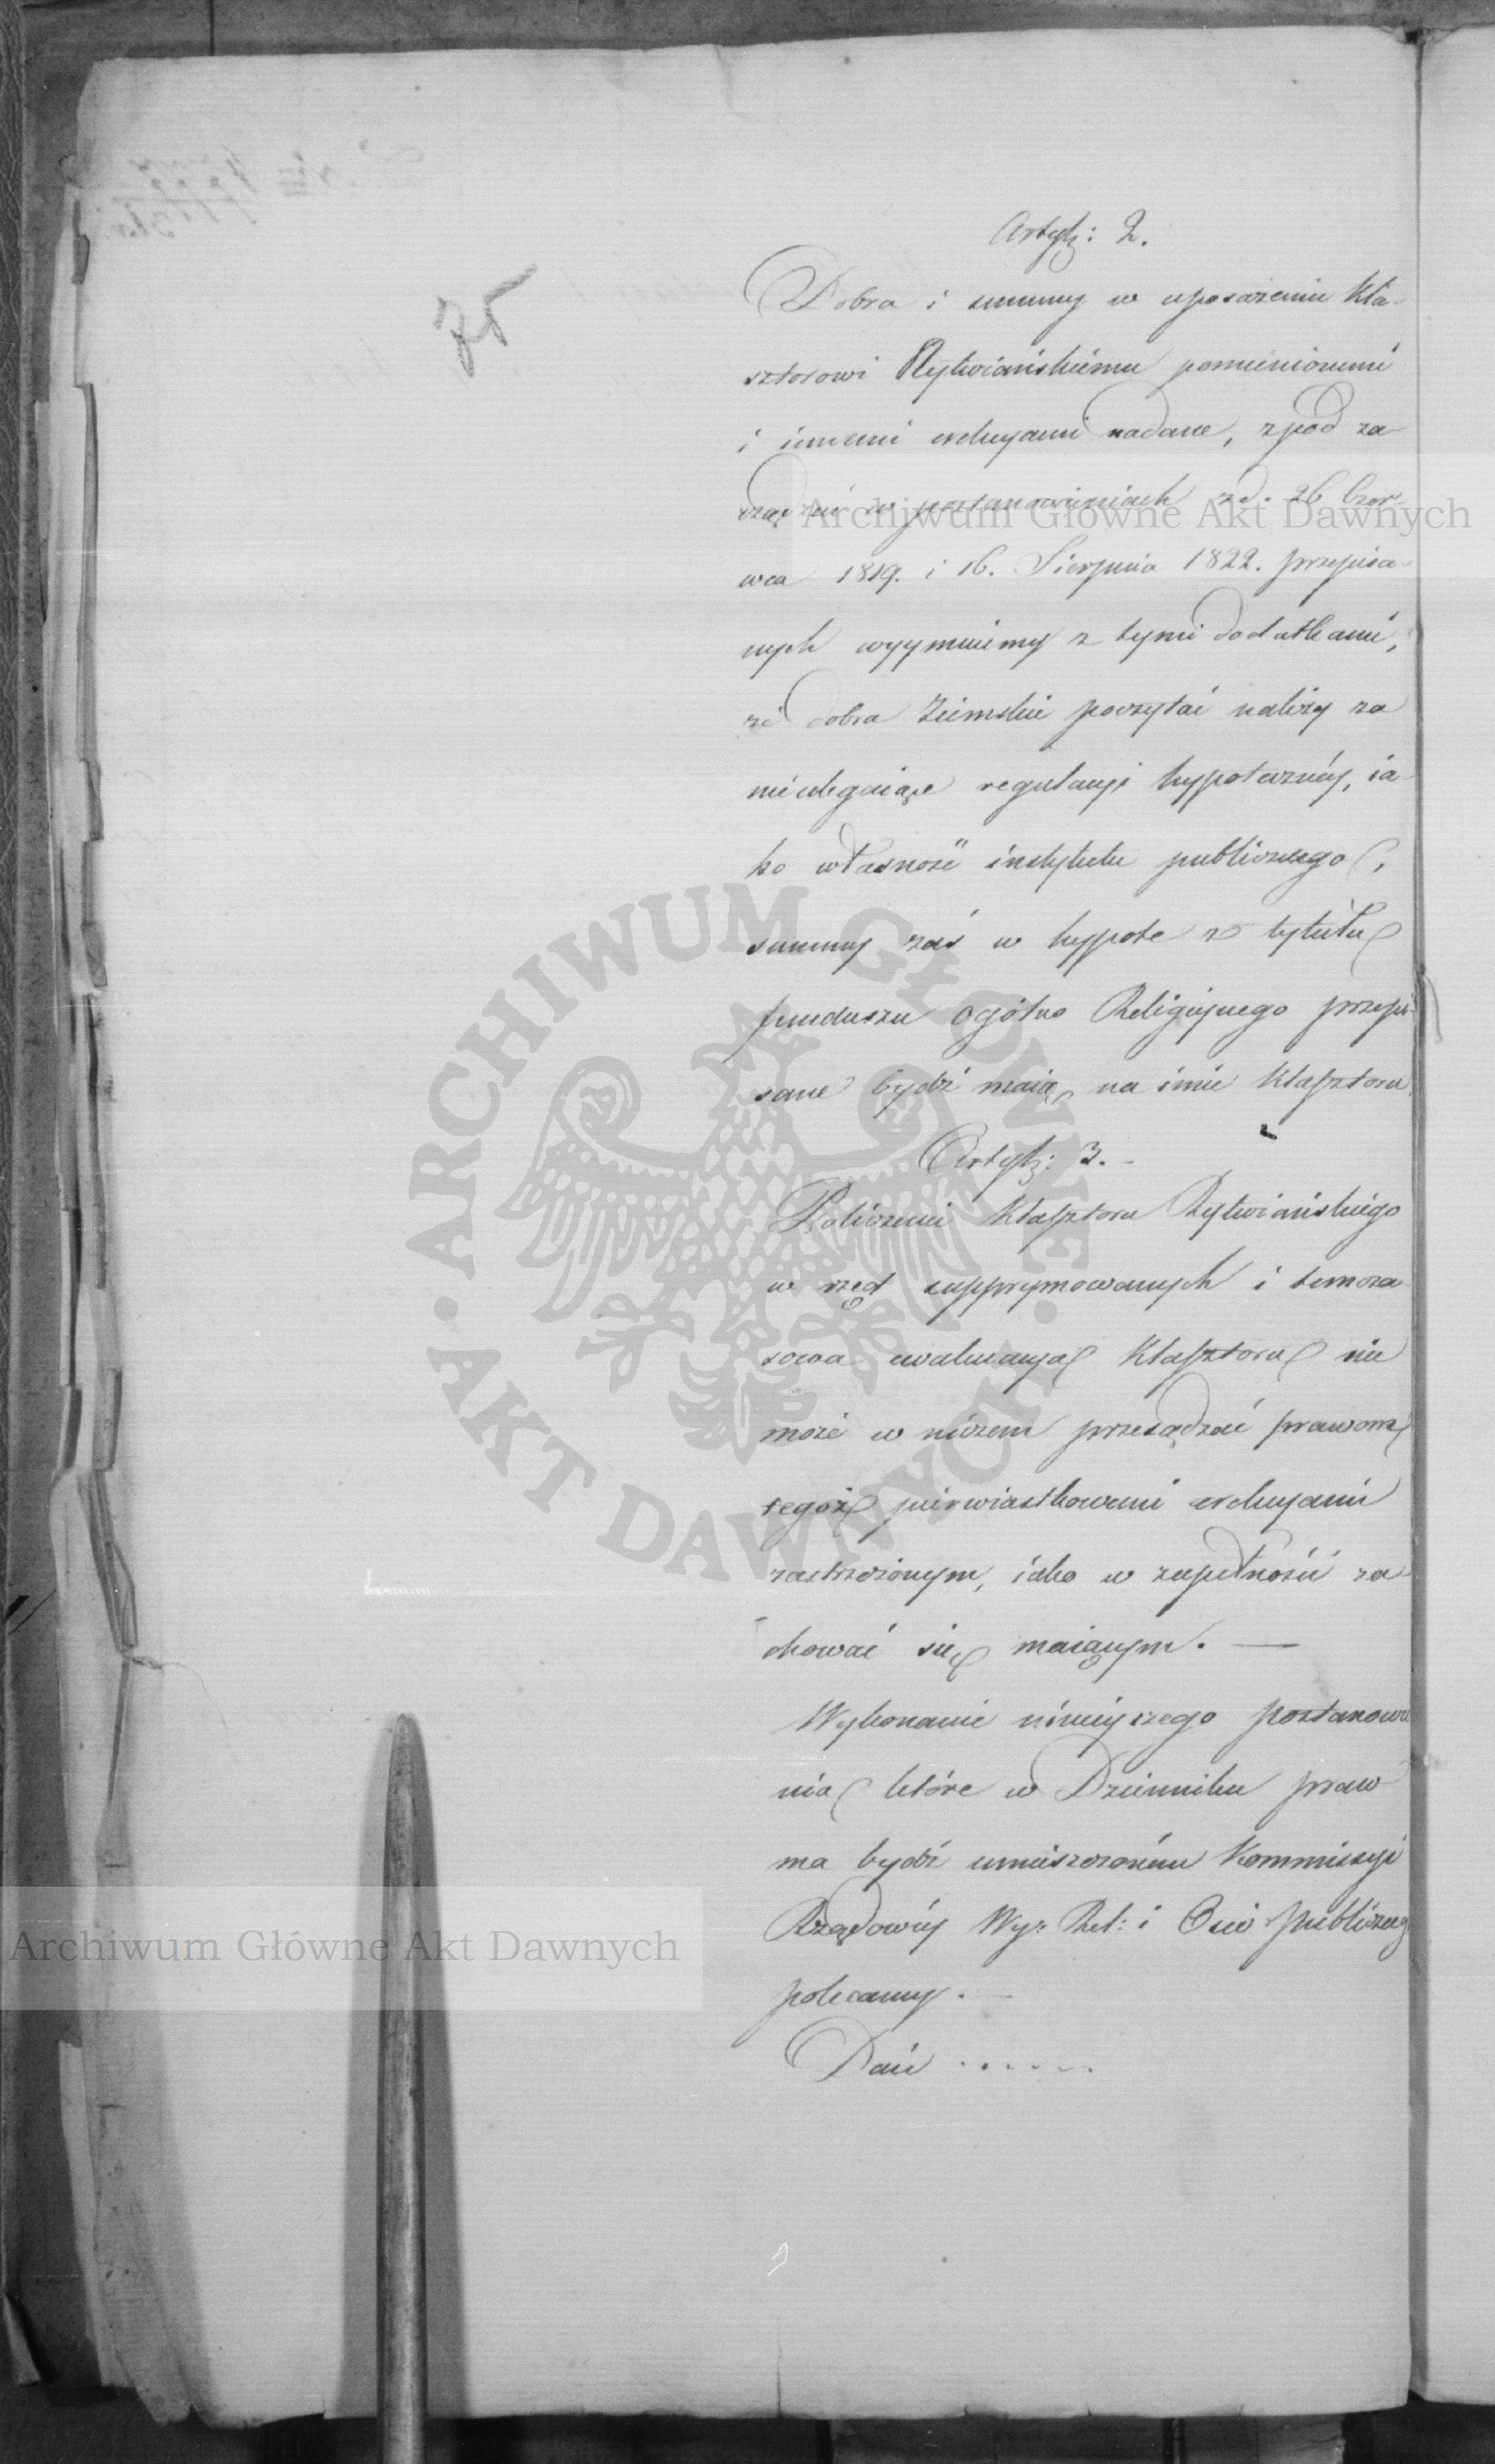 75
Artyk: 2.
Dobra i summy w uposażeniu Kla-
sztorowi Rytwiańskiemu pomienionemi
i innemi erekcyami nadane, zpod za-
rządzeń w postanowieniach z d. 26 Czer-
wca 1819. i 16. Sierpnia 1822. przepisa-
nych wyymuiemy z tymi dodatkami,
że dobra Ziemskie poczytać należy za
nieulegaiące regulacyi hypoteczney, ia-
ko własność instytutu publicznego,
summy zaś w hypote z tytułu
funduszu ogólno Religiynego przepi-
sane bydź maią na imie Klasztoru
Artyk: 3.
Policzenie Klasztoru Rytwiańskiego
w rzęd supprymowanych i temcza-
sowa ewakuacya Klasztoru nie
może w niczem przesądzać prawom
tegoż pierwiastkowemi erekcyami
zastrzeżonym, iako w zupełności za-
chować się maiącym. —
Wykonanie ninieyszego postanowie
nia które w Dzienniku praw
ma bydź umieszczoném Kommissyi
Rządowéy Wyz: Rel: i Oświ publiczneg
polecamy. —
Dań . . . . . .
Archiwum Główne Akt Dawnych
Archiwum Główne Akt Dawnych
ARCHIWUM GŁÓWNE · AKT DAWNYCH ·